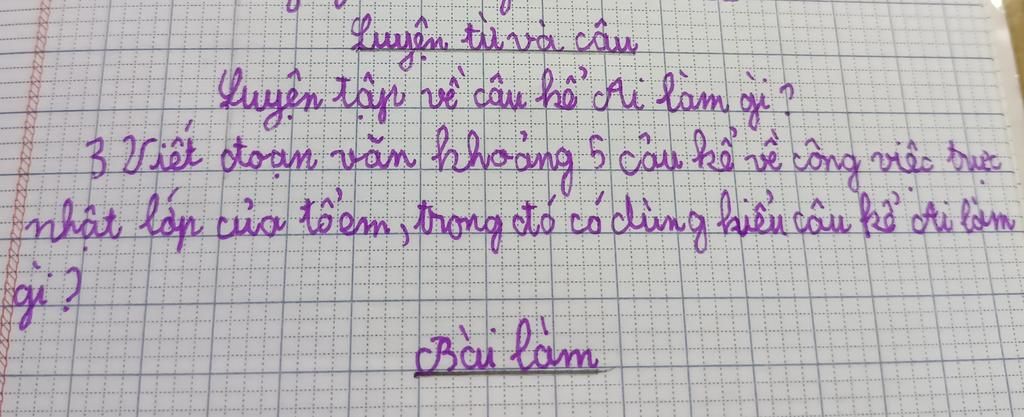 Luyện từ và câu
Luyện tập về câu kể Ai làm gì?
3 Viết đoạn văn khoảng 5 câu kể về công việc trực
nhật lớp của tổ em, trong đó có dùng kiểu câu kể Ai làm
gì?
Bài làm